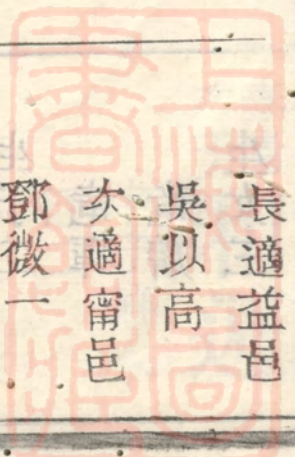 長適益邑
吳以高
次適甯邑
鄧微一